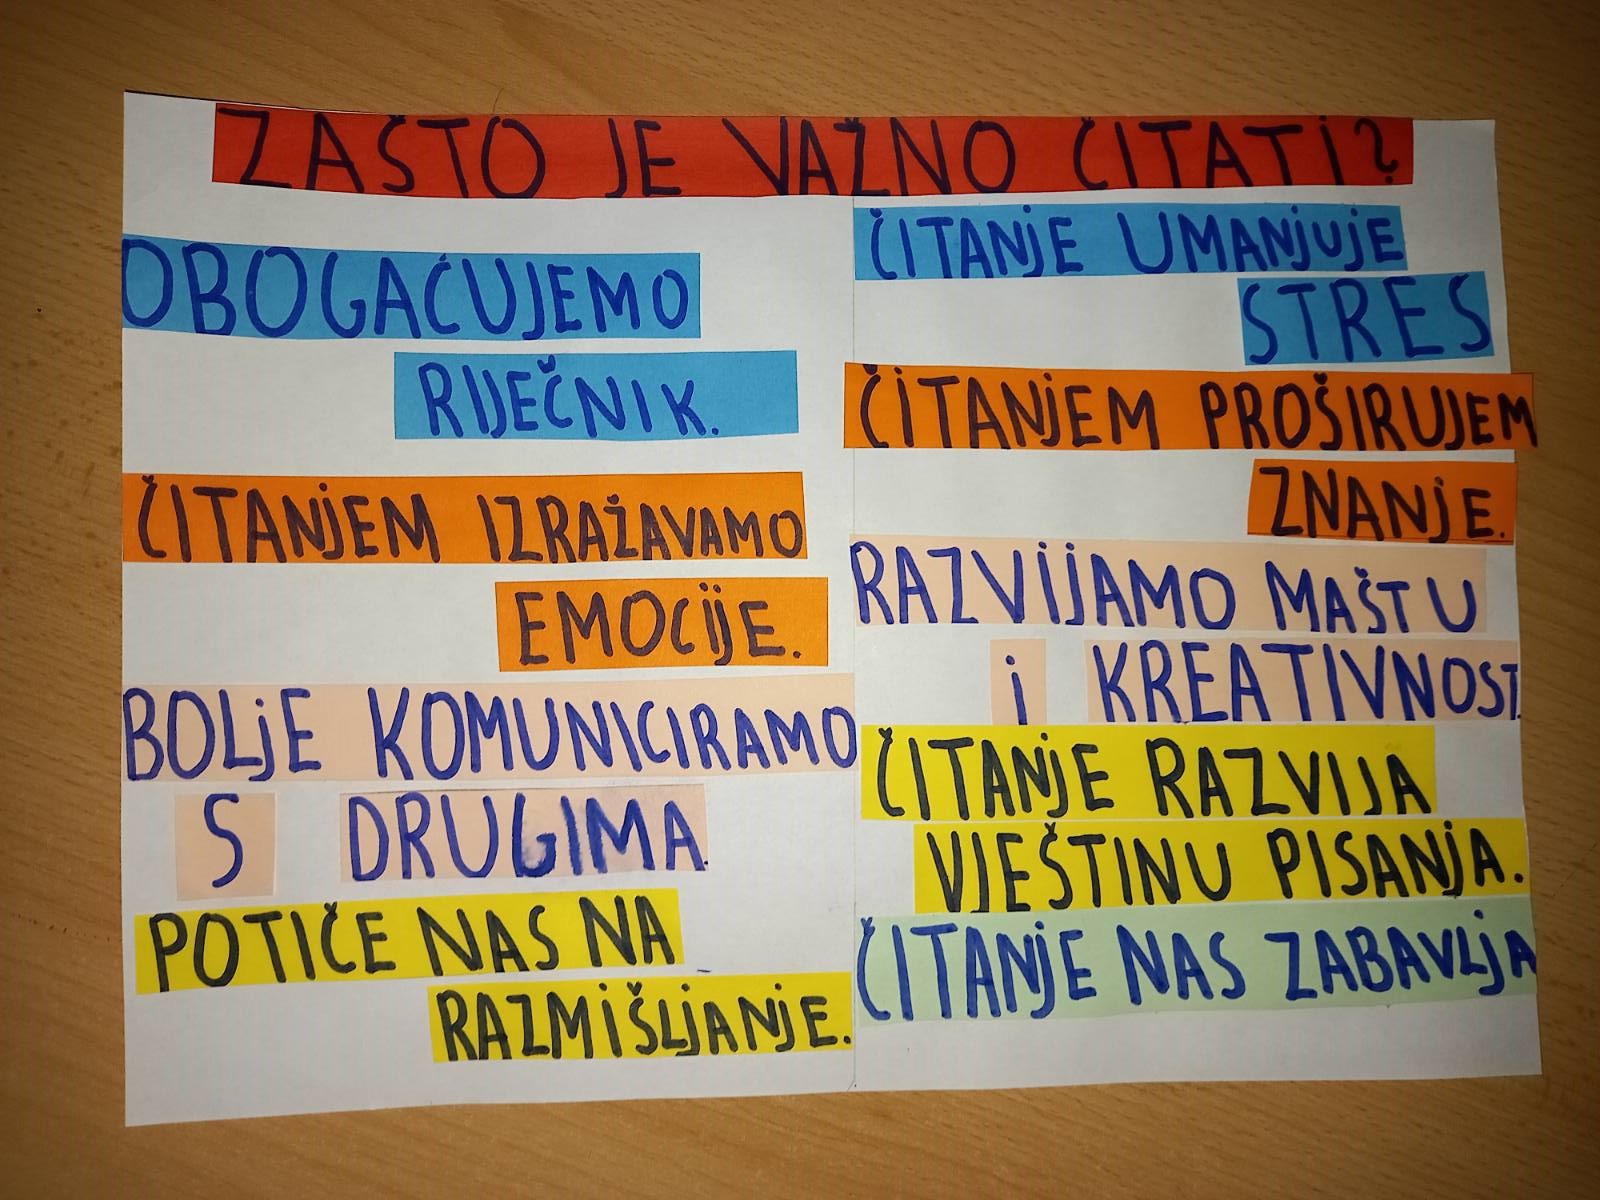 ZAŠTO JE VAŽNO ČITATI?
OBOGAĆUJEMO
RIJEČNIK.
ČITANJEM IZRAŽAVAMO
EMOCIJE.
BOLJE KOMUNICIRAMO
S DRUGIMA.
POTIČE NAS NA
RAZMIŠLJANJE.
ČITANJE UMANJUJE
STRES
ČITANJEM PROŠIRUJEM
ZNANJE.
RAZVIJAMO MAŠTU
i KREATIVNOST.
ČITANJE RAZVIJA
VJEŠTINU PISANJA.
ČITANJE NAS ZABAVLJA